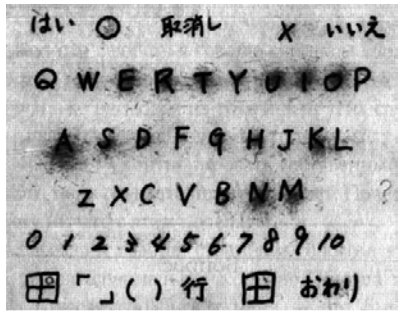 はい ○ 取消し × いいえ
Q W E R T Y U I O P
A S D F G H J K L
Z X C V B N M ?
0 1 2 3 4 5 6 7 8 9 10
「 」 ( ) 行 おわり